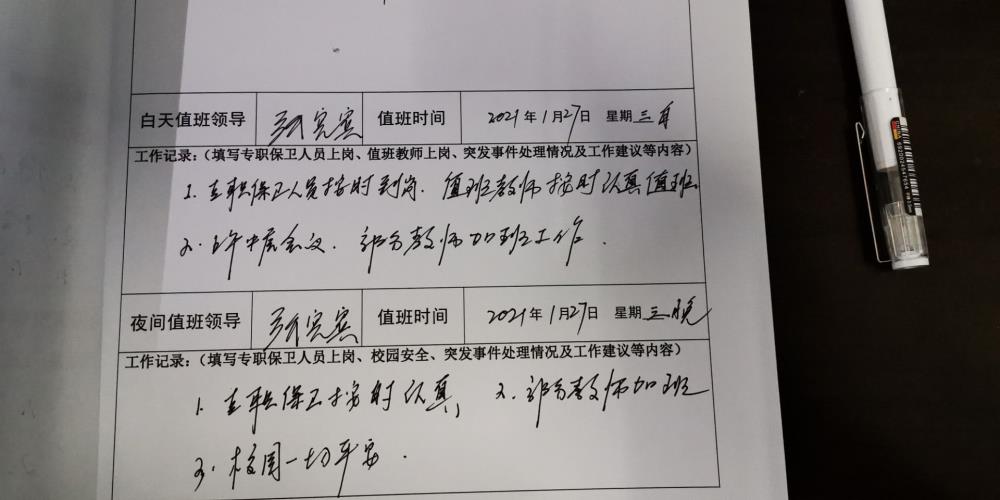 白天值班领导 值班时间 2021年1月27日 星期三
工作记录:(填写专职保卫人员上岗、值班教师上岗、突发事件处理情况及工作建议等内容)
1. 专职保卫人员按时到岗. 值班教师按时认真值班
2. 会议. 部分教师加班工作.
夜间值班领导 值班时间 2021年1月27日 星期三晚
工作记录:(填写专职保卫人员上岗、校园安全、突发事件处理情况及工作建议等内容)
1. 专职保卫按时认真, 2. 部分教师加班
3. 校园一切平安.